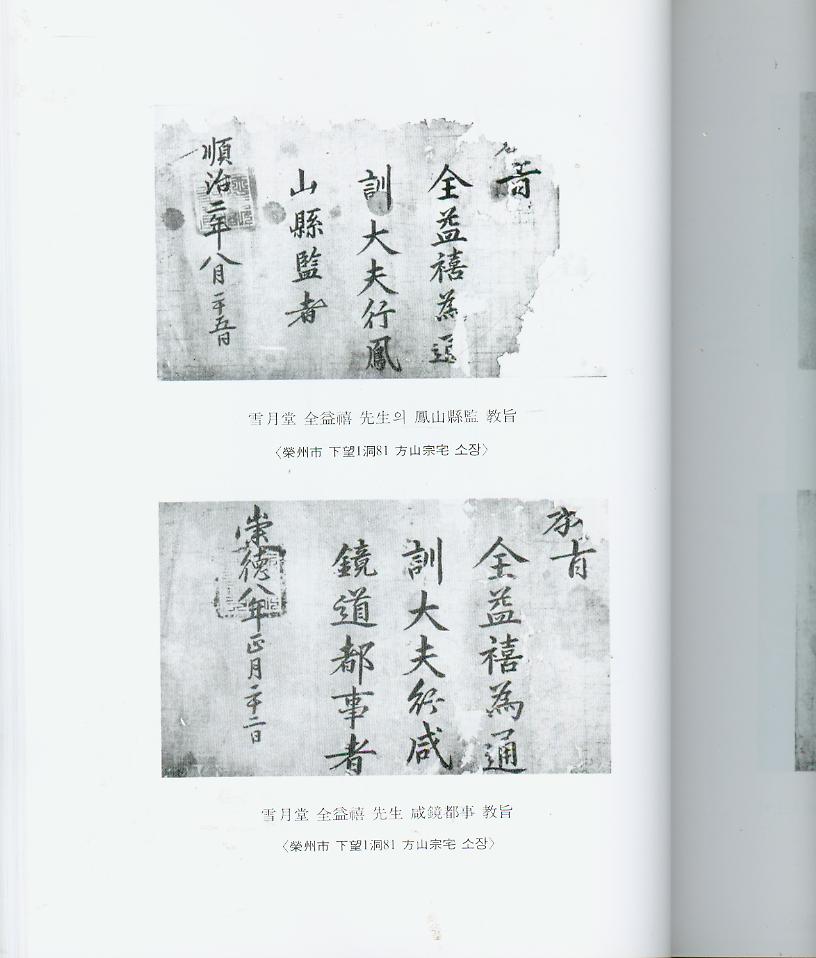 旨
全益禧為通
訓大夫行鳳
山縣監者
順治二年八月二十五日
雪月堂 全益禧 先生의 鳳山縣監 教旨
〈榮州市 下望1洞81 方山宗宅 소장〉
教旨
全益禧為通
訓大夫行咸
鏡道都事者
崇德八年正月二十二日
雪月堂 全益禧 先生 咸鏡都事 教旨
〈榮州市 下望1洞81 方山宗宅 소장〉